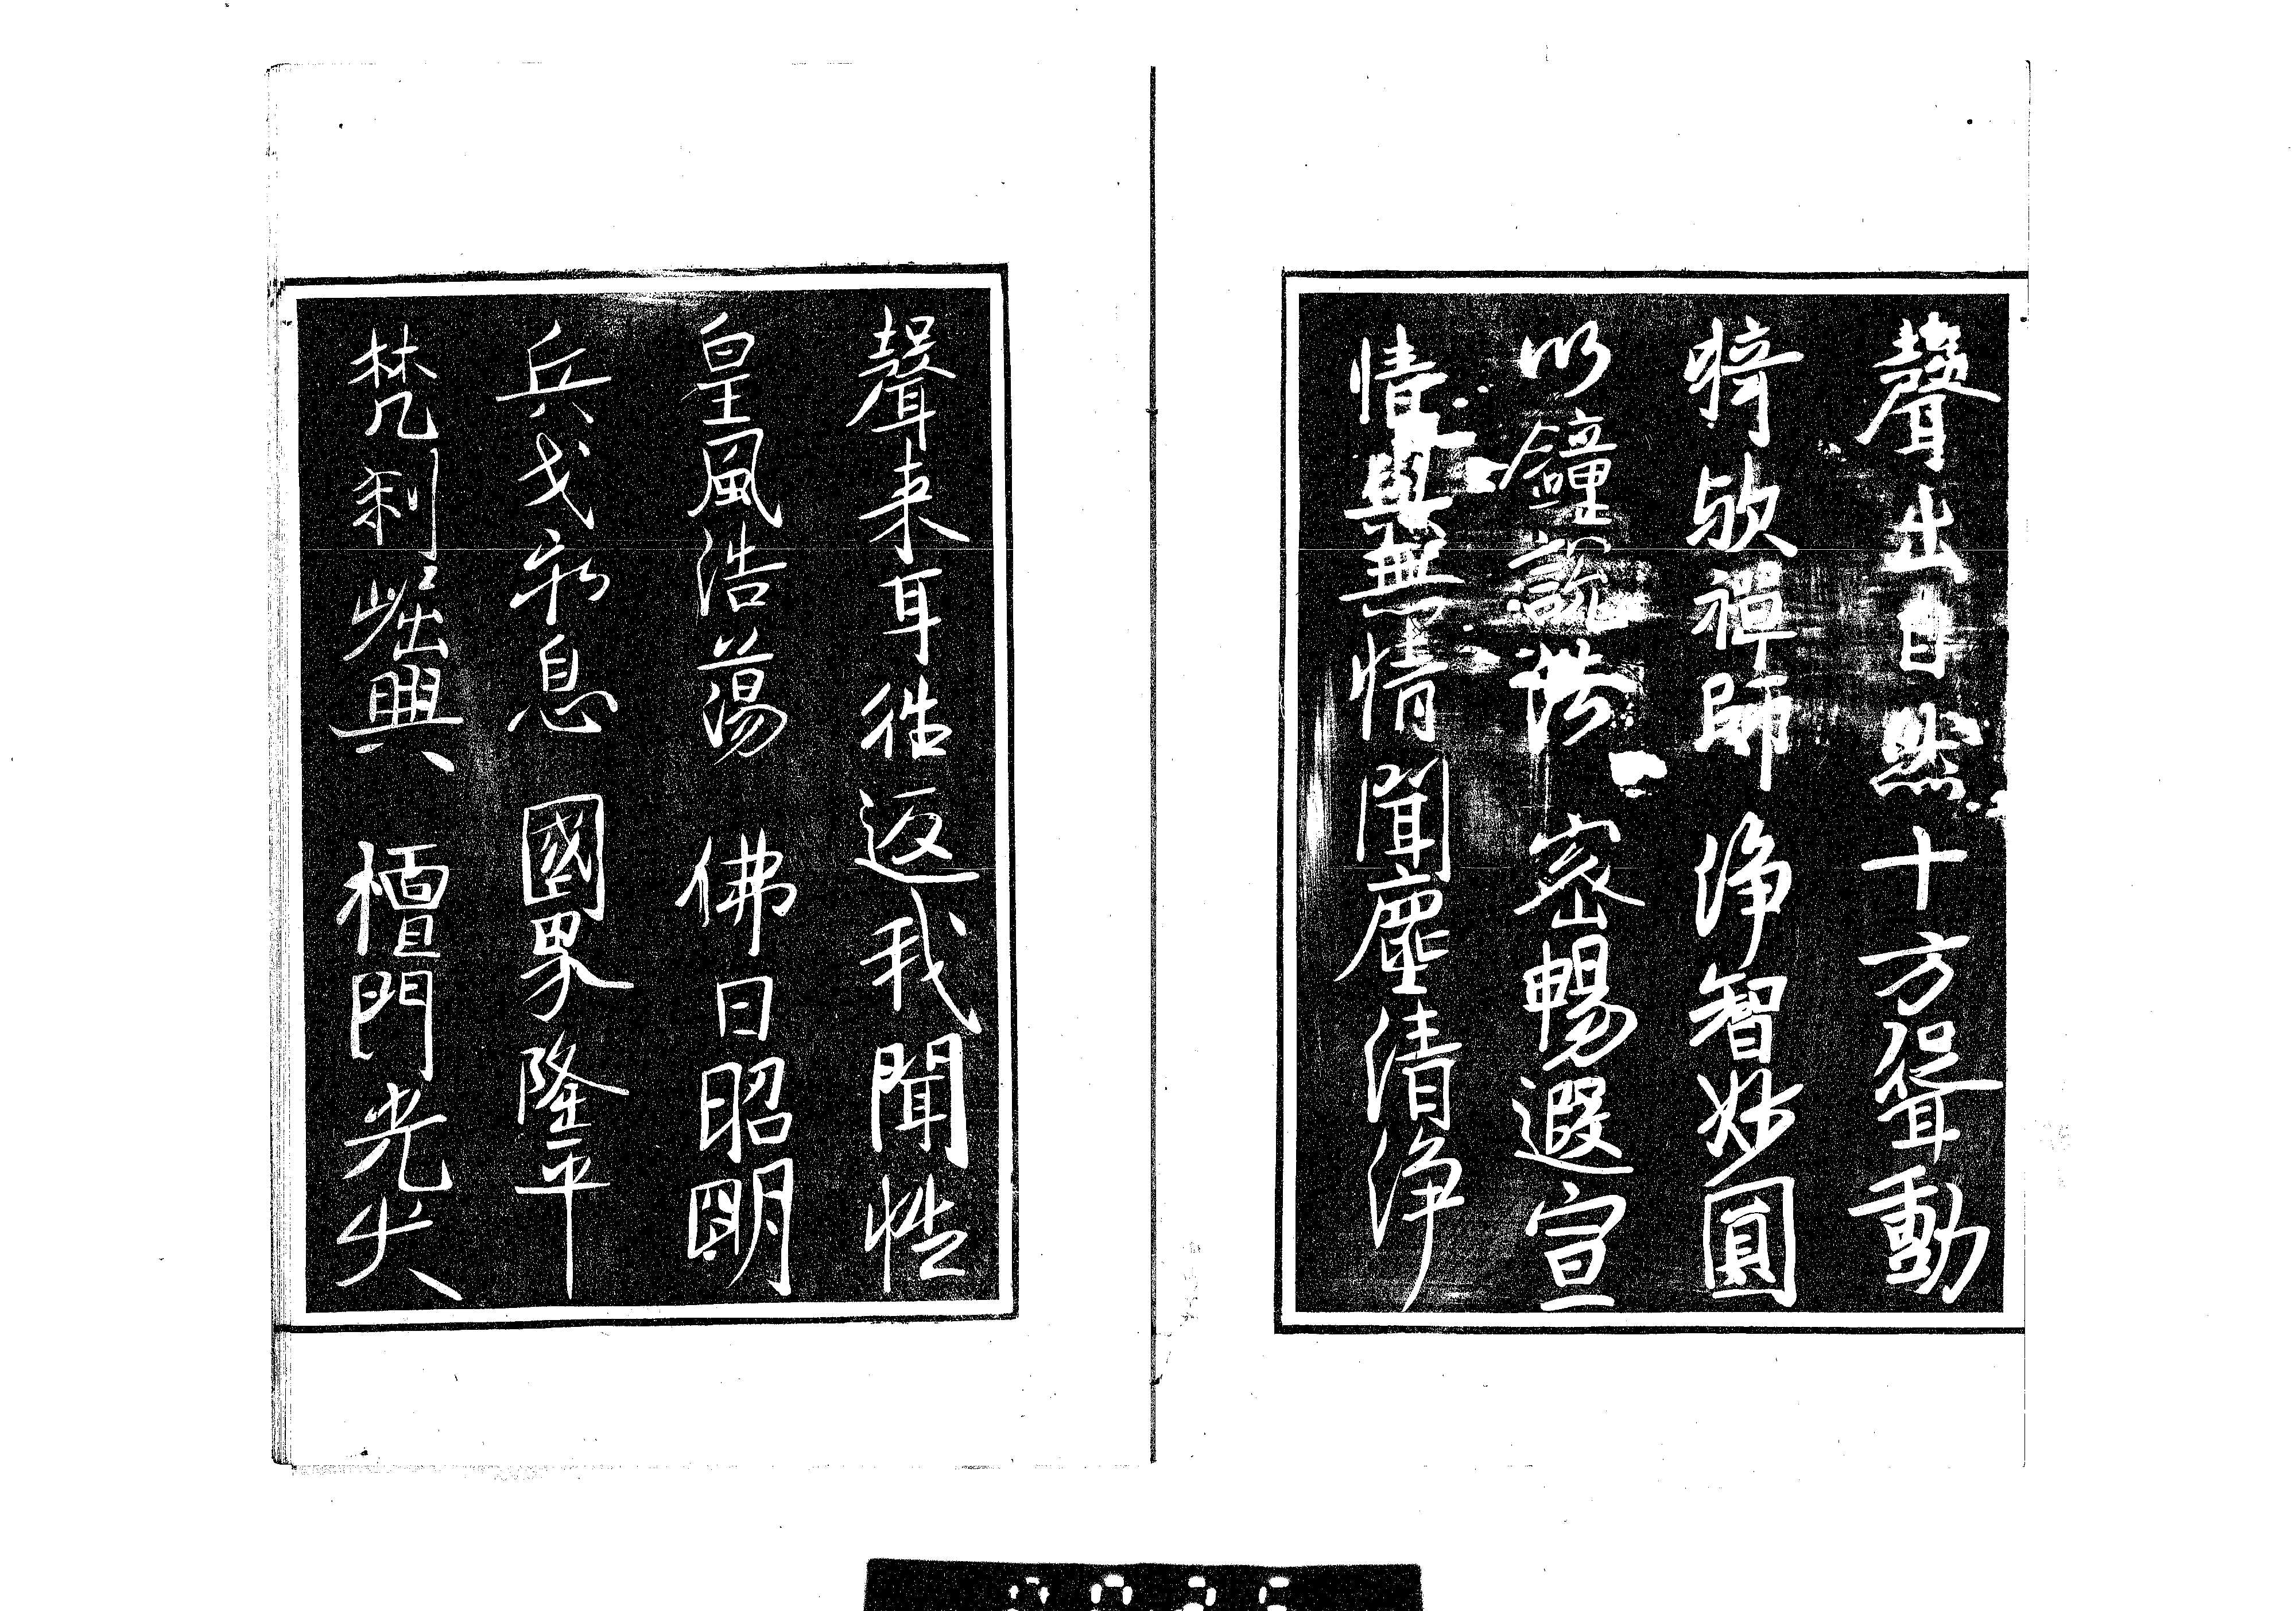 聲出自然十方聲動
猗欤禪師淨智妙圓
以鐘説法密暢遐宣
情與無情聞塵清淨
聲来耳徃返我聞性
皇風浩蕩佛日昭明
兵戈永息國界隆平
梵刹崛興檀門光大